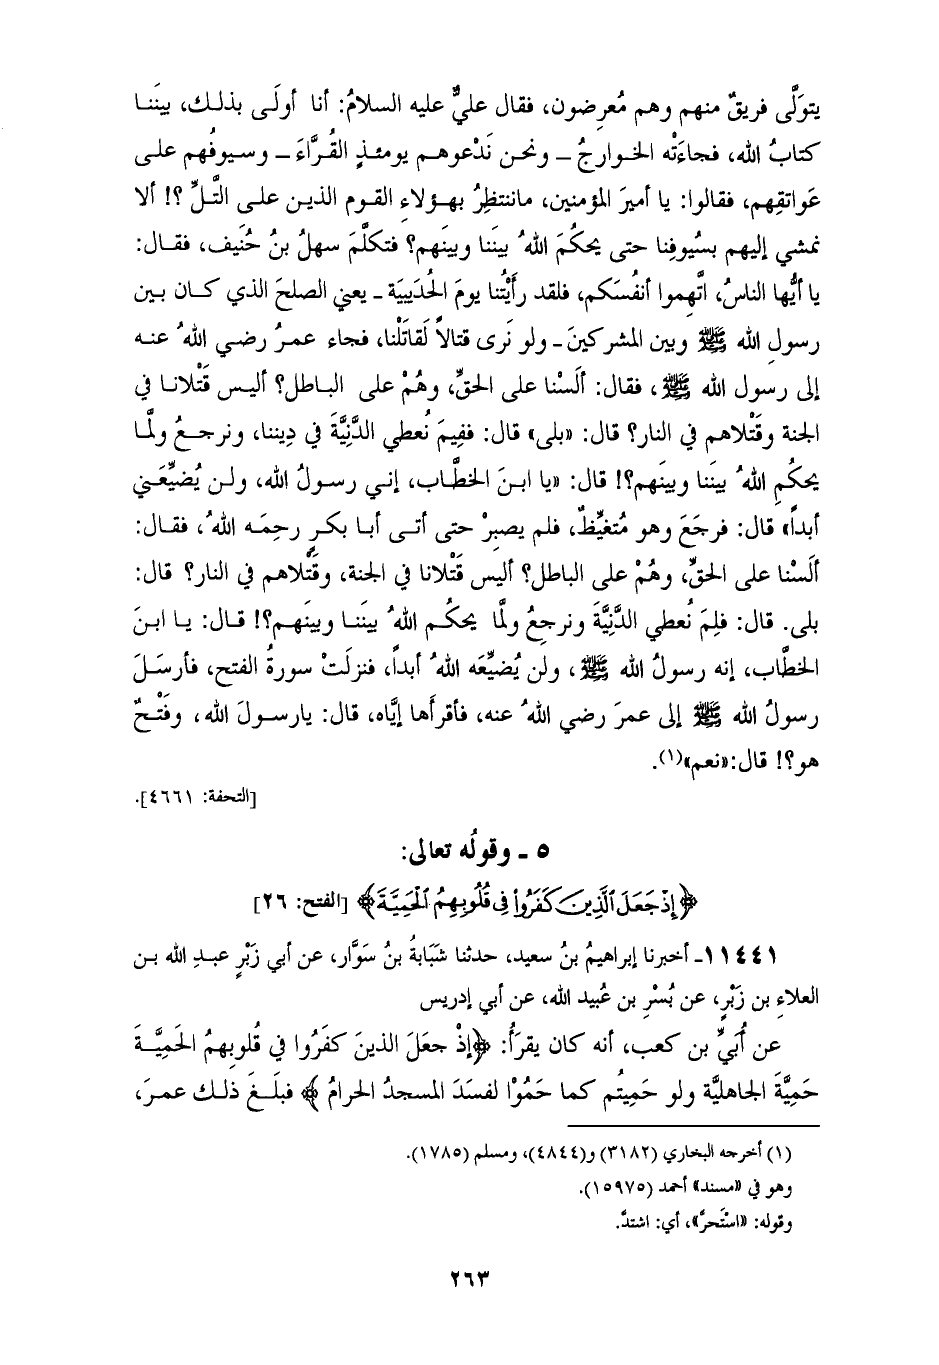 يتولَّى فريقٌ منهم وهم مُعرِضون، فقال عليٌّ عليه السلامُ: أنا أولَى بذلك، بينَنا
كتابُ الله، فجاءَتْه الخوارجُ ــ ونحن نَدْعوهم يومئذٍ القُرَّاءَ ــ وسيوفُهم على
عَواتقِهم، فقالوا: يا أميرَ المؤمنين، ماننتظِرُ بهؤلاءِ القوم الذين على التَّلِّ ؟! ألا
نمشي إليهم بسُيوفِنا حتى يحكُمَ اللهُ بينَنا وبينَهم؟ فتكلَّمَ سهلُ بنُ حُنَيف، فقال:
يا أيُّها الناسُ، اتَّهِموا أنفُسَكم، فلقد رأَيْتُنا يومَ الحُدَيبيَة ـ يعني الصلحَ الذي كان بين
رسولِ الله ﷺ وبين المشركينَ ـ ولو نَرى قتالاً لَقاتَلْنا، فجاء عمرُ رضي اللهُ عنه
إلى رسول الله ﷺ، فقال: ألَسْنا على الحقِّ، وهُمْ على الباطل؟ أليس قَتْلانا في
الجنة وقَتْلاهم في النار؟ قال: «بلى» قال: ففِيمَ نُعطي الدَّنِيَّةَ في دِيننا، ونرجعُ ولمَّا
يحكُمِ اللهُ بينَنا وبينَهم؟! قال: «يا ابنَ الخطَّاب، إني رسولُ الله، ولن يُضيِّعَني
أبداً» قال: فرجَعَ وهو مُتغيِّظٌ، فلم يصبِرْ حتى أتى أبا بكرٍ رحِمَه اللهُ، فقال:
ألَسْنا على الحقِّ، وهُمْ على الباطل؟ أليس قَتْلانا في الجنة، وقَتْلاهم في النار؟ قال:
بلى. قال: فلِمَ نُعطي الدَّنِيَّةَ ونرجعُ ولمَّا يحكُم اللهُ بينَنا وبينَهم؟! قال: يا ابنَ
الخطَّاب، إنه رسولُ الله ﷺ، ولن يُضيِّعَه اللهُ أبداً، فنزلَتْ سورةُ الفتح، فأرسَلَ
رسولُ الله ﷺ إلى عمرَ رضي اللهُ عنه، فأقرأَها إيَّاه، قال: يارسولَ الله، وفَتْحٌ
هو؟! قال:«نعم»(١).
[التحفة: ٤٦٦١].
٥ ـ وقولُه تعالى:
﴿إِذْ جَعَلَ ٱلَّذِينَ كَفَرُوا۟ فِى قُلُوبِهِمُ ٱلْحَمِيَّةَ﴾ [الفتح: ٢٦]
١١٤٤١ـ أخبرنا إبراهيمُ بنُ سعيد، حدثنا شَبَابةُ بنُ سَوَّار، عن أبي زَبْرٍ عبدِ الله بن
العلاءِ بن زَبْرٍ، عن بُسْرِ بن عُبيد الله، عن أبي إدريس
عن أُبَيِّ بن كعب، أنه كان يقرَأُ: ﴿إذْ جعَلَ الذينَ كفَرُوا في قُلوبِهمُ الحَمِيَّةَ
حَمِيَّةَ الجاهليَّة ولو حَمِيتُم كما حَمُوْا لفسَدَ المسجدُ الحرامُ﴾ فبلَغَ ذلك عمرَ،
(١) أخرجه البخاري (٣١٨٢) و(٤٨٤٤)، ومسلم (١٧٨٥).
وهو في «مسند» أحمد (١٥٩٧٥).
وقوله: «اسْتَحرَّ»، أي: اشتدَّ.
٢٦٣